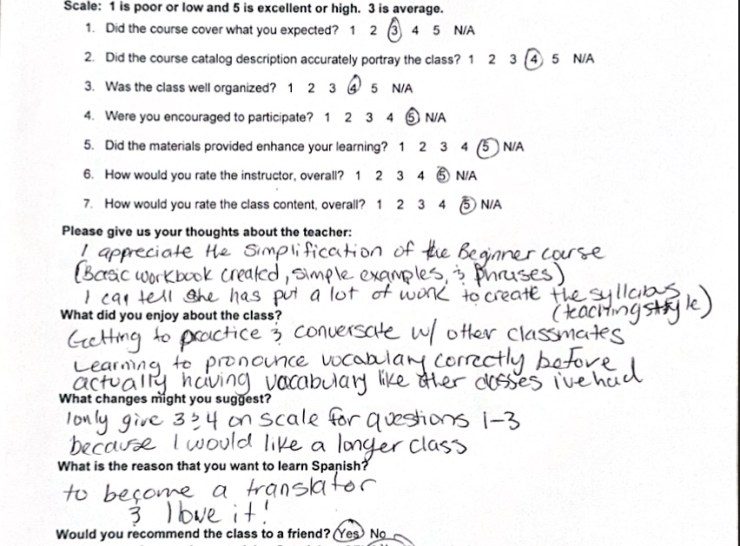 Scale: 1 is poor or low and 5 is excellent or high. 3 is average.
1. Did the course cover what you expected? 1 2 3 4 5 N/A
2. Did the course catalog description accurately portray the class? 1 2 3 4 5 N/A
3. Was the class well organized? 1 2 3 4 5 N/A
4. Were you encouraged to participate? 1 2 3 4 5 N/A
5. Did the materials provided enhance your learning? 1 2 3 4 5 N/A
6. How would you rate the instructor, overall? 1 2 3 4 5 N/A
7. How would you rate the class content, overall? 1 2 3 4 5 N/A
Please give us your thoughts about the teacher:
I appreciate the simplification of the Beginner course
(Basic workbook created, simple examples, & phrases)
I can tell she has put a lot of work to create the syllabus
(teaching style)
What did you enjoy about the class?
Getting to practice & conversate w/ other classmates
Learning to pronounce vocabulary correctly before
actually having vacabulary like other classes i've had
What changes might you suggest?
I only give 3 & 4 on scale for questions 1-3
because I would like a longer class
What is the reason that you want to learn Spanish?
to become a translator
& I love it!
Would you recommend the class to a friend? Yes No